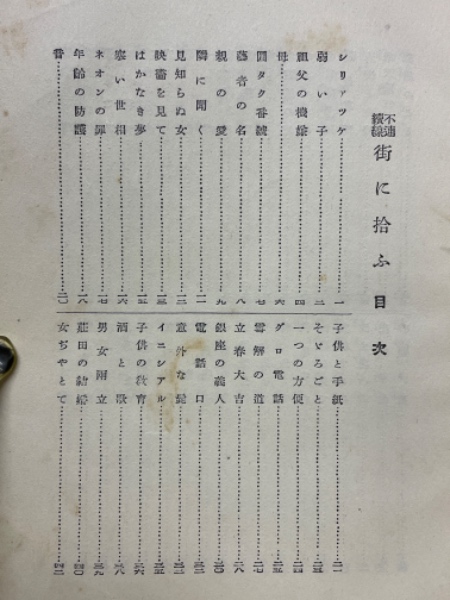 不連続線 街に拾ふ 目次
シリアツケ 一
弱い子 二
祖父の機嫌 四
母 六
圓タク番號 七
藝者の名 八
親の愛 九
隣に聞く 一一
見知らぬ女 一二
映畫を見て 一三
はかなき夢 一五
寒い世相 一六
ネオンの罪 一七
年齡の防護 一八
昔 二〇
子供と手紙 二一
そゞろごと 二三
一つの方便 二四
グロ電話 二五
雪解の道 二七
立春大吉 二八
銀座の義人 三〇
電話口 三二
意外な愛 三三
イニシアル 三五
子供の敎育 三六
酒と歌 三八
男女兩立 三九
莊田の結婚 四〇
女ぢやとて 四二